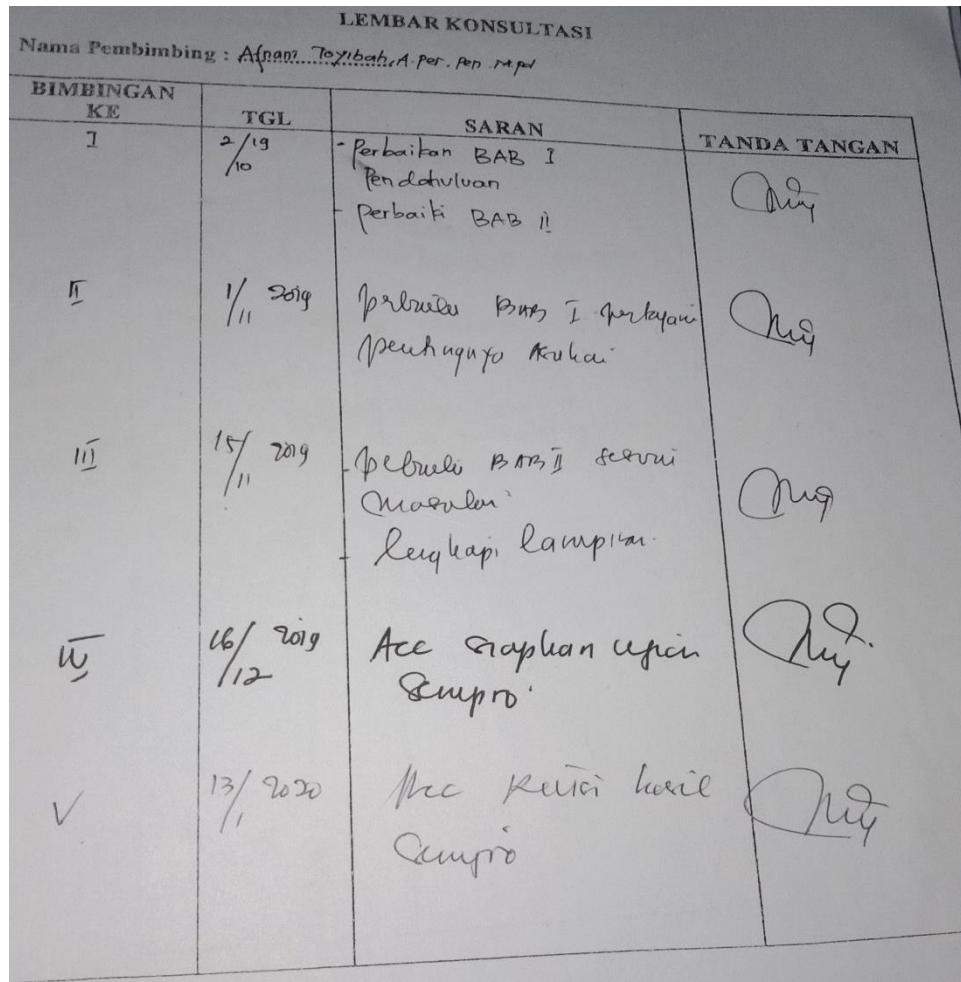 LEMBAR KONSULTASI
Nama Pembimbing : Afnani Toyibah, A. Per. Pen. M.pd
BIMBINGAN KE
TGL
SARAN
TANDA TANGAN
I
2/10 19
- Perbaikan BAB I
Pendahuluan
- Perbaiki BAB II
II
1/11 2019
BAB I
pentingnya
III
15/11 2019
- BAB II sesuai
masukan
- lengkapi lampiran.
IV
16/12 2019
Acc siapkan ujian
Sempro
V
13/1 2020
Acc Revisi hasil
Sempro